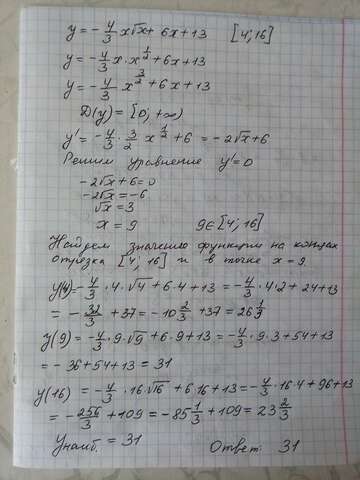 y = -4/3 x√x + 6x + 13 [4; 16]
y = -4/3 x · x^(1/2) + 6x + 13
y = -4/3 x^(3/2) + 6x + 13
D(y) = [0; +∞)
y' = -4/3 · 3/2 x^(1/2) + 6 = -2√x + 6
Решим уравнение y' = 0
-2√x + 6 = 0
-2√x = -6
√x = 3
x = 9 9 ∈ [4; 16]
Найдем значению функции на концах
отрезка [4; 16] и в точке x = 9
y(4) = -4/3 · 4 · √4 + 6·4 + 13 = -4/3 · 4·2 + 24+13
= -32/3 + 37 = -10 2/3 + 37 = 26 1/3
y(9) = -4/3 · 9·√9 + 6·9 + 13 = -4/3 · 9·3 + 54+13
= -36 + 54 + 13 = 31
y(16) = -4/3 · 16·√16 + 6·16 + 13 = -4/3 · 16·4 + 96+13
= -256/3 + 109 = -85 1/3 + 109 = 23 2/3
Yнаиб. = 31 Ответ: 31